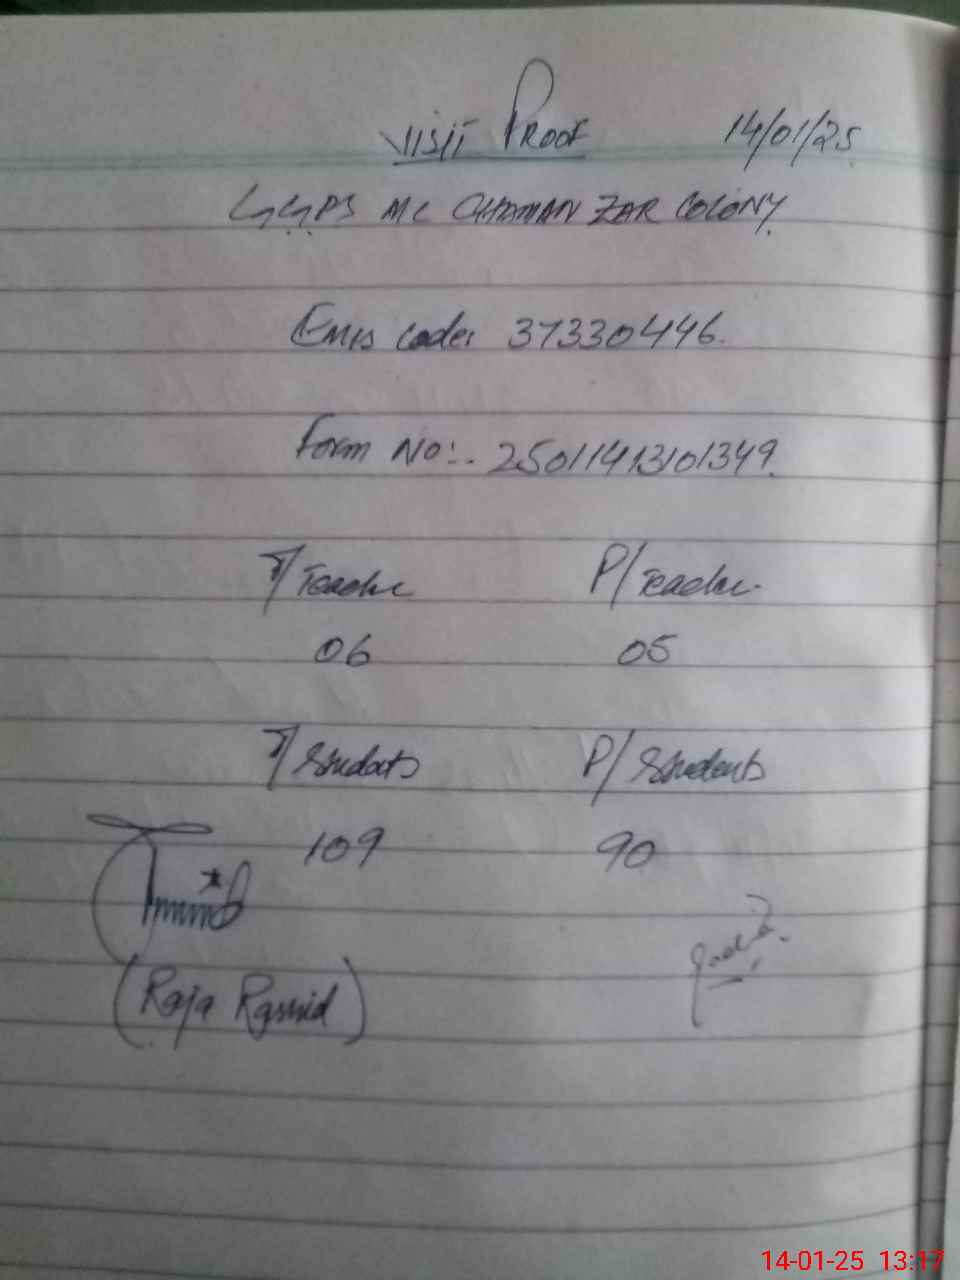 VISIT PROOF 14/01/25
GGPS MC CHAMAN ZAR COLONY.
Emis code: 37330446.
Form No:. 2501141310 1349.
T/Teacher P/Teacher.
06 05
T/Students P/Students
109 90
(Raja Rashid)
14-01-25 13:17